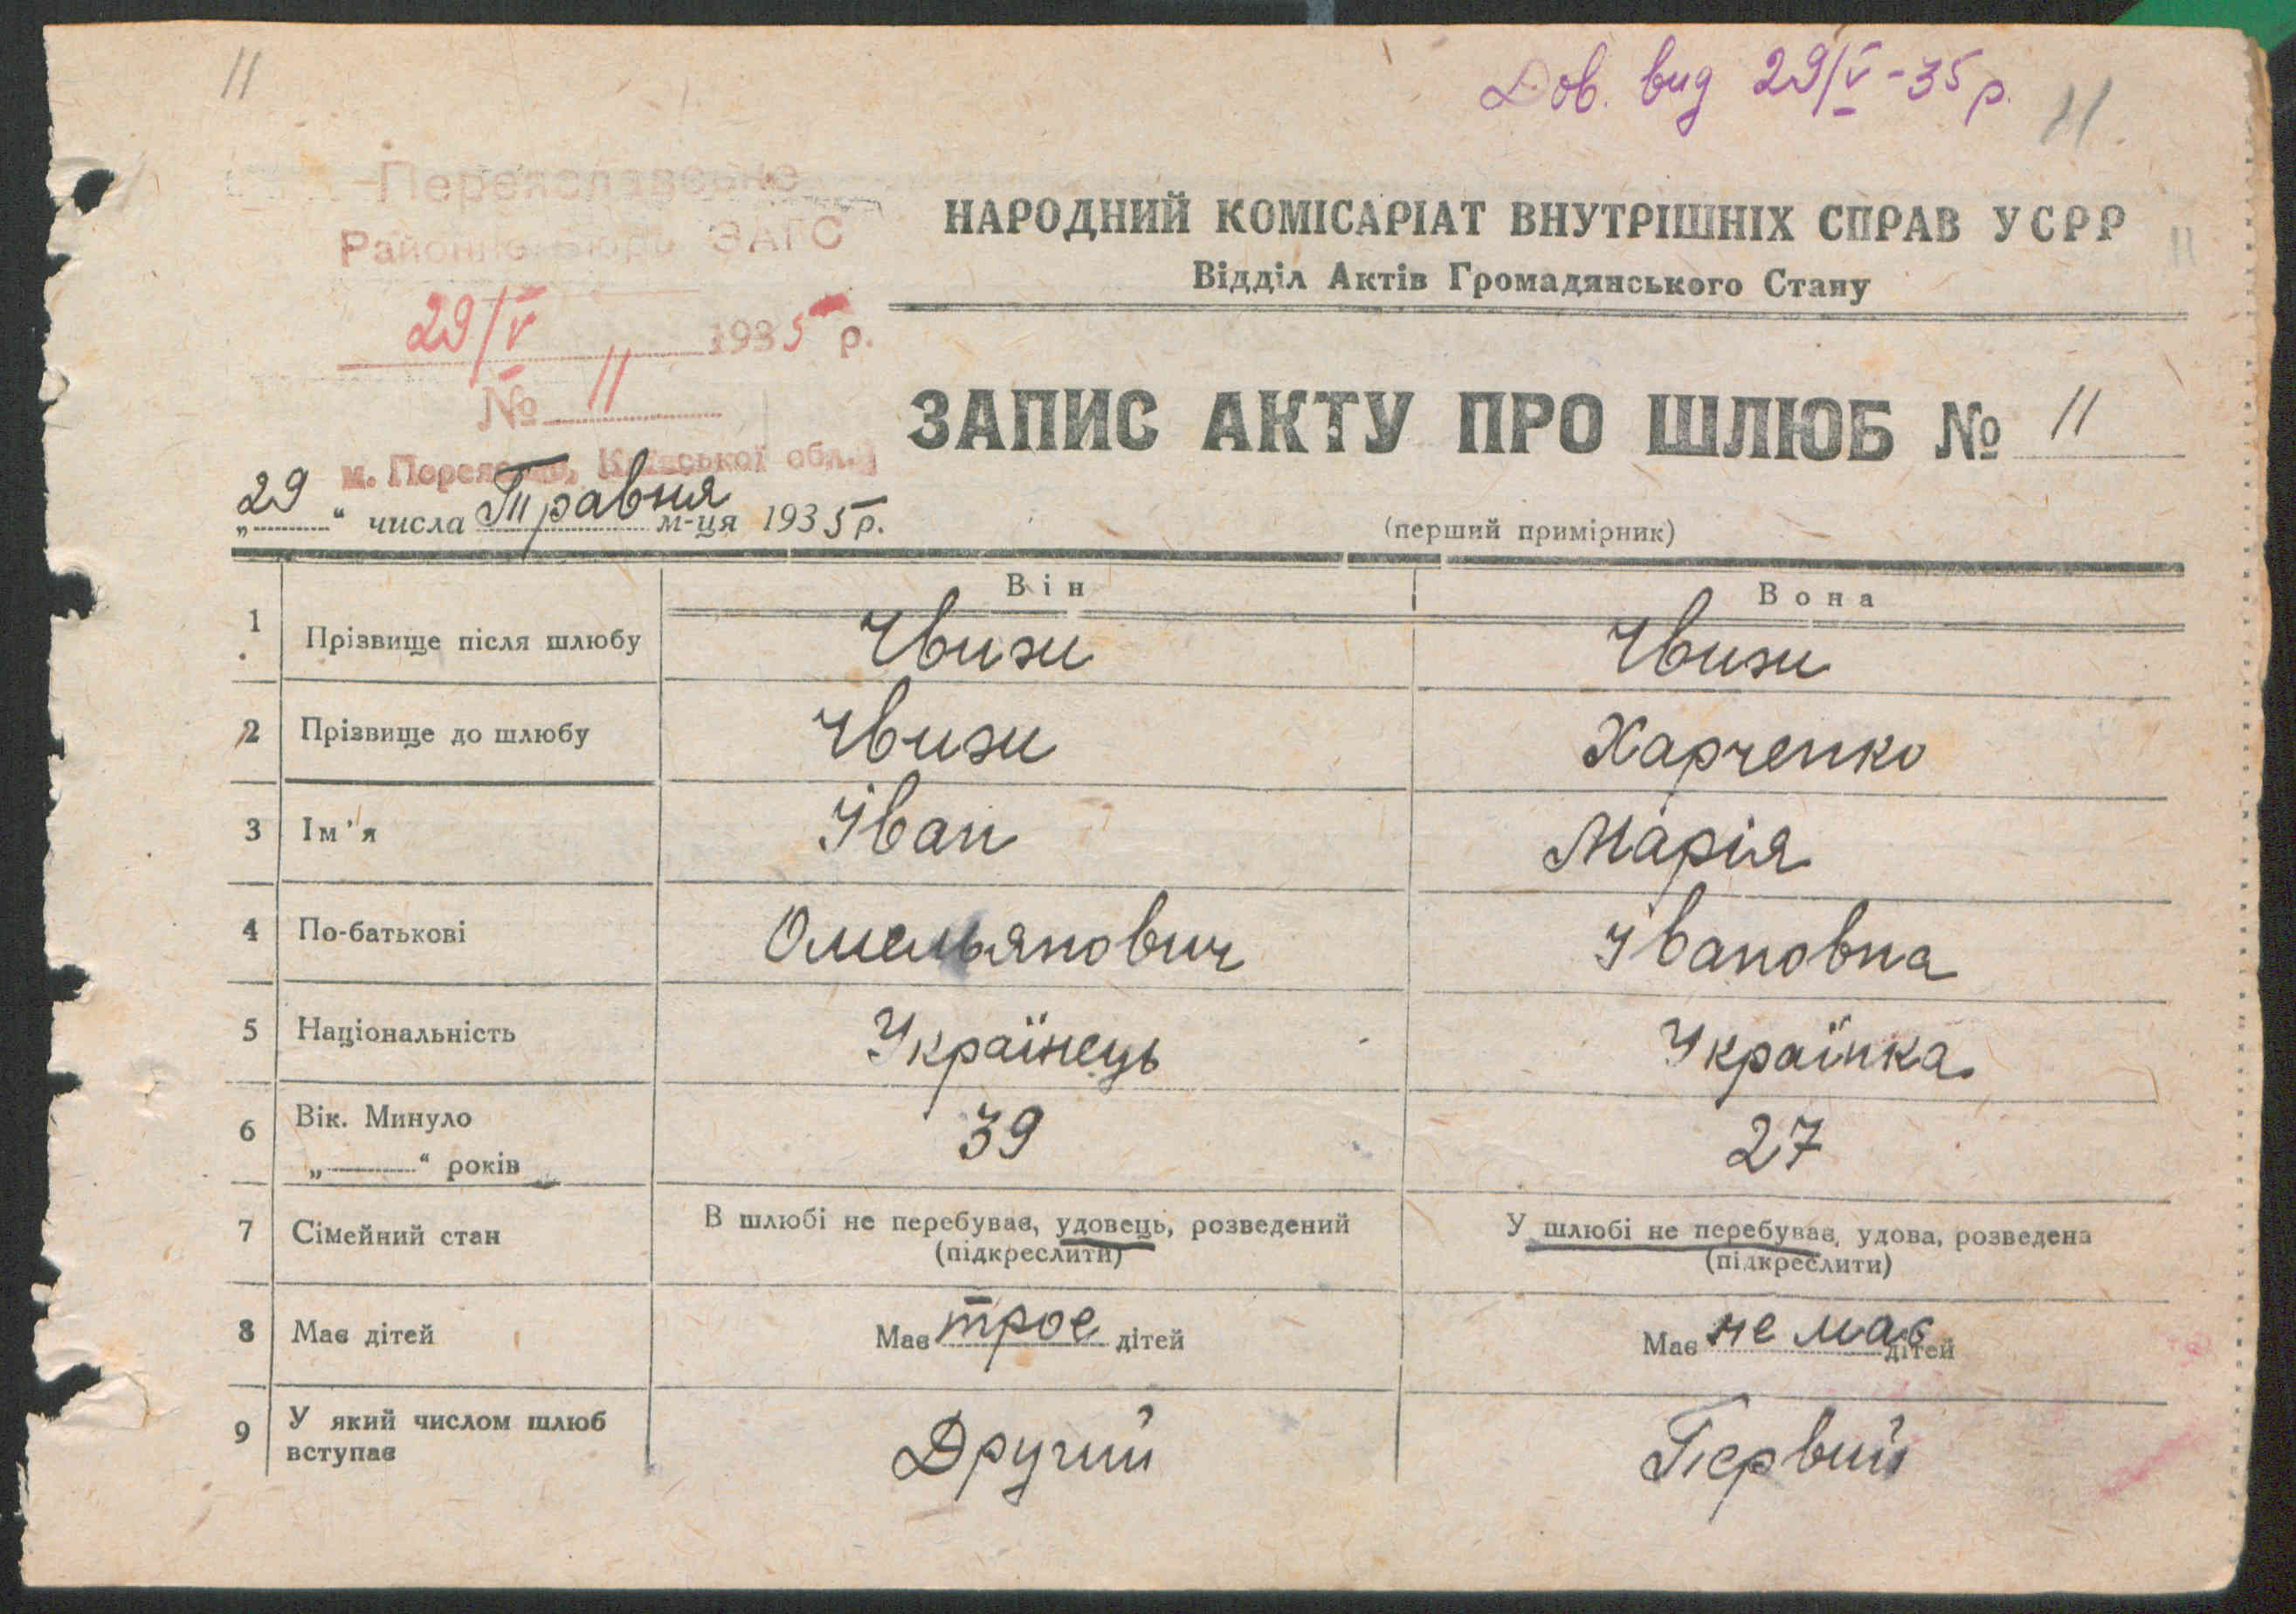 11
Дов. вид 29/V-35 р.
11
Переяславське
Районне Бюро ЗАГС
29/V 1935 р.
№ 11
м. Переяслав, Київської обл.
НАРОДНИЙ КОМІСАРІАТ ВНУТРІШНІХ СПРАВ УСРР
11
Відділ Актів Громадянського Стану
ЗАПИС АКТУ ПРО ШЛЮБ № 11
„29“ числа Травня м-ця 1935 р.
(перший примірник)
Він Вона
1 Прізвище після шлюбу Чвижи Чвижи
2 Прізвище до шлюбу Чвижи Харченко
3 Ім'я Іван Марія
4 По-батькові Омельянович Івановна
5 Національність Українець Українка
6 Вік. Минуло 39 27
„ “ років
7 Сімейний стан В шлюбі не перебуває, удовець, розведений У шлюбі не перебуває, удова, розведена
(підкреслити) (підкреслити)
8 Має дітей Має трое дітей Має не має дітей
9 У який числом шлюб Другий Первий
вступає